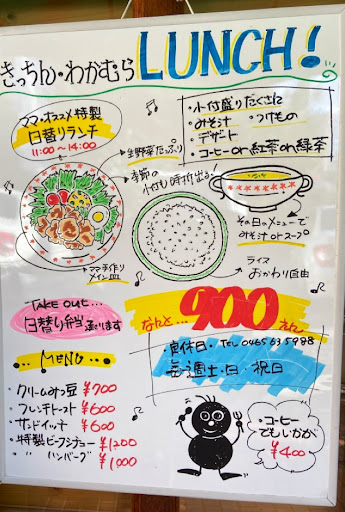 きっちん・わかむら LUNCH!
ママ・オススメ 特製
日替りランチ
11:00〜14:00
・小付盛りだくさん
・みそ汁 ・つけもの
・デザート
・コーヒー or 紅茶 or 緑茶
生野菜たっぷり
季節の
小付も時折出る!
その日のメニューで
みそ汁 or スープ
ママ手作り
メイン皿
ライス
おかわり自由
TAKE OUT...
日替り弁当 承ります
なんと... 900えん
・定休日・ TEL 0465 63 5988
毎週土・日・祝日
...MENU...
・クリームみつ豆 ¥700
・フレンチトースト ¥600
・サンドイッチ ¥600
・特製ビーフシチュー ¥1,200
・ 〃 ハンバーグ ¥1,000
・コーヒー
でもいかが
¥400